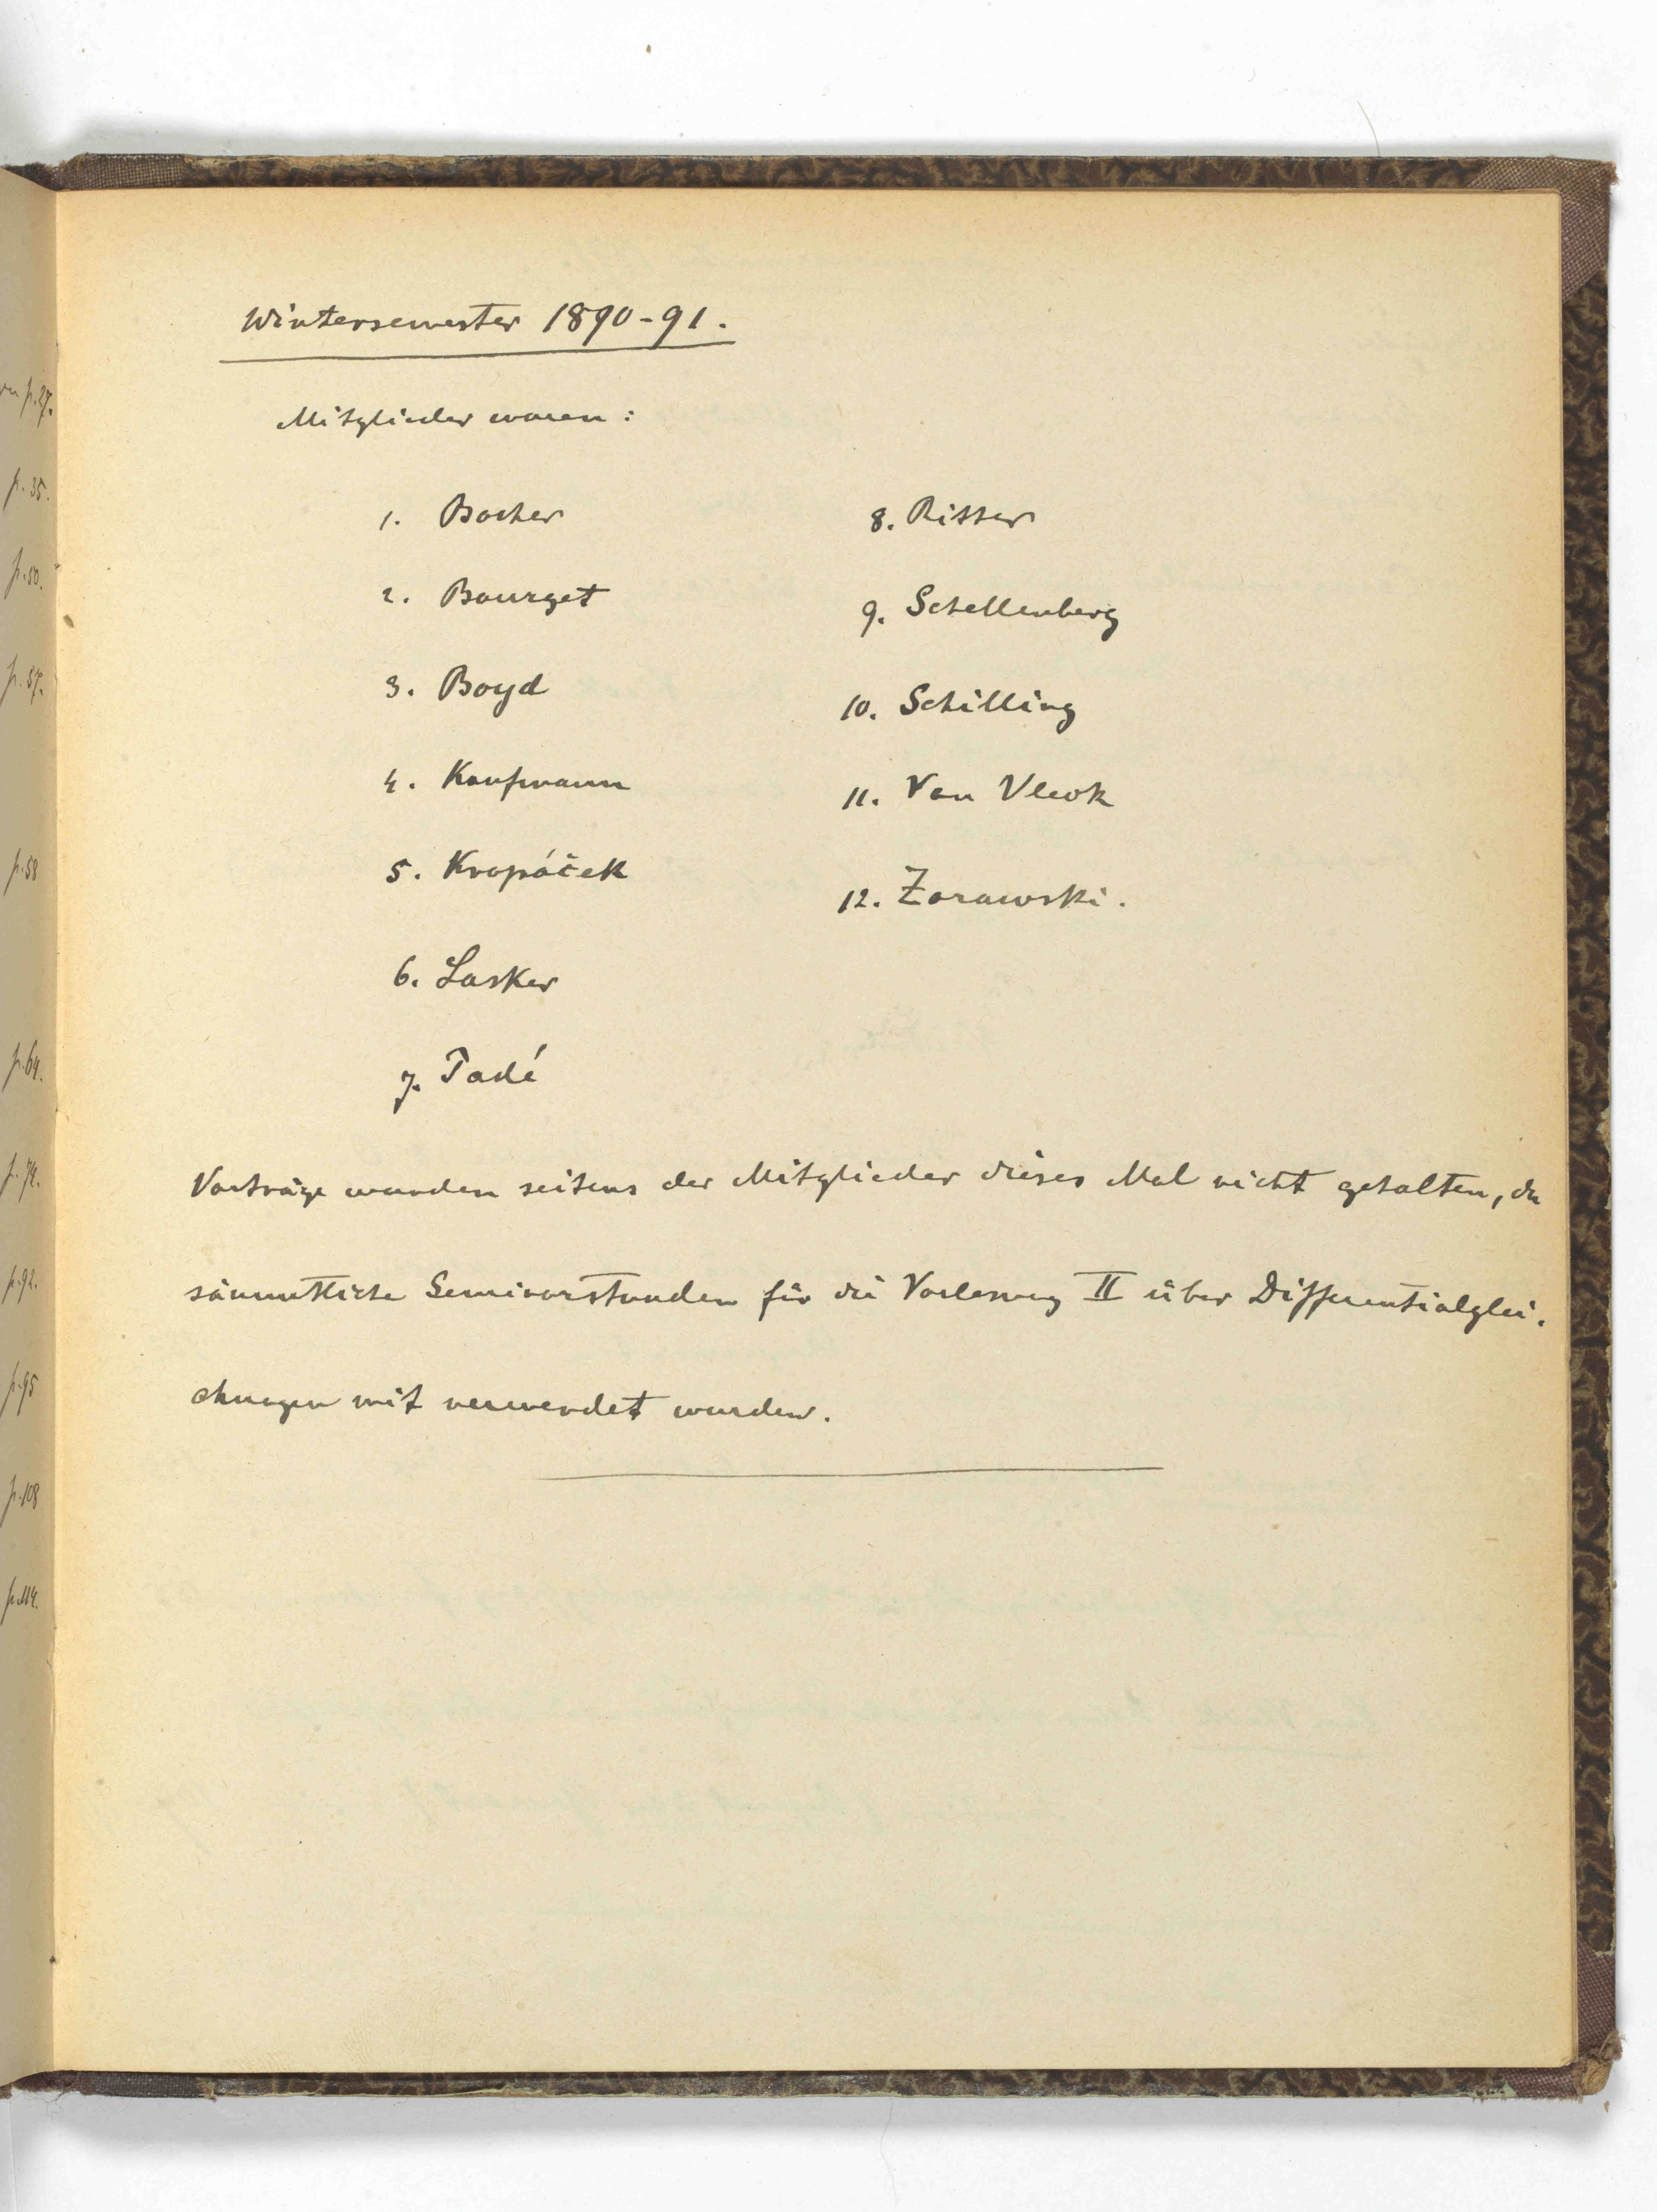 Wintersemester 1890-91.
Mitglieder waren:
1. Bocher
2. Bourget
3. Boyd
4. Kaufmann
5. Kropáček
6. Lasker
7. Padé
8. Ritter
9. Schellenberg
10. Schilling
11. Van Vleck
12. Zorawski.
Vorträge wurden seitens der Mitglieder dieses Mal nicht gehalten, da
sämmtliche Seminarstunden für die Vorlesung II über Differentialglei-
chungen mit verwendet wurden.
p. 27.
p. 35.
p. 50.
p. 57.
p. 58
p. 64.
p. 74.
p. 92.
p. 95
p. 108
p. 114.